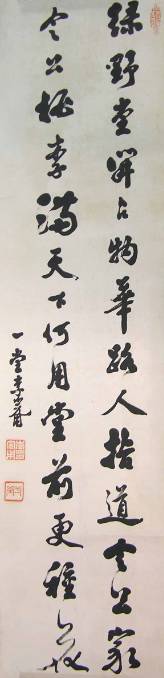 綠野堂開占物華路人指道令公家
令公桃李滿天下何用堂前更種花
一堂李完用